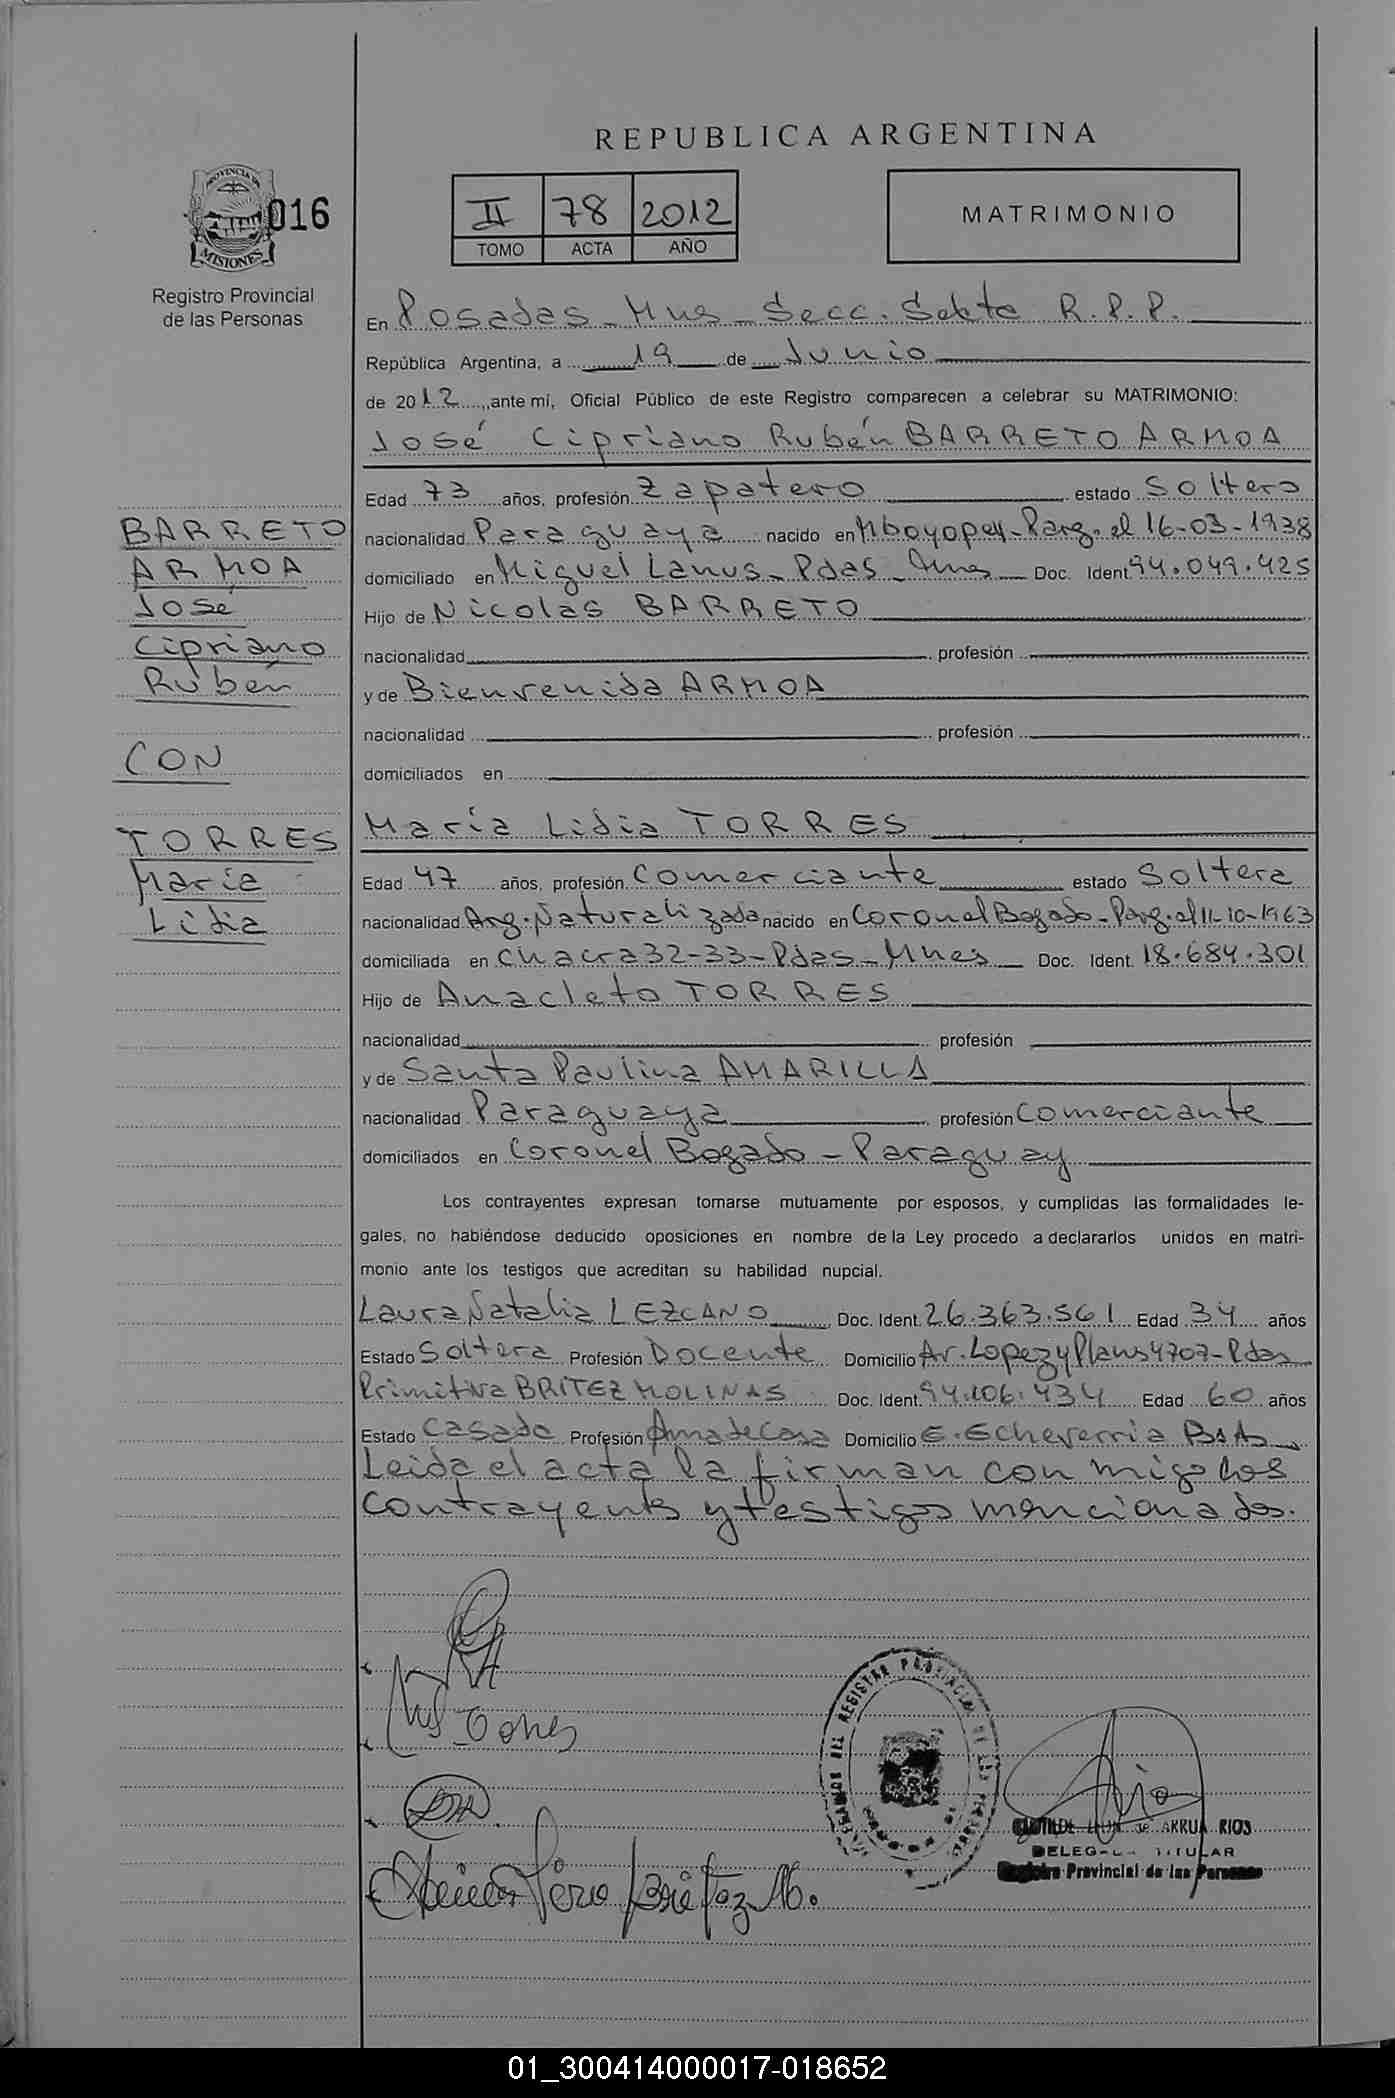 REPUBLICA ARGENTINA
PROVINCIA DE
MISIONES
016
Registro Provincial
de las Personas
II 78 2012
TOMO ACTA AÑO
MATRIMONIO
En Posadas - Mnes - Secc. Sexta R.P.P.
República Argentina, a 19 de Junio
de 2012, ante mí, Oficial Público de este Registro comparecen a celebrar su MATRIMONIO:
José Cipriano Rubén BARRETO ARMOA
Edad 73 años, profesión Zapatero estado Soltero
nacionalidad Paraguaya nacido en Mboyopey - Parg. el 16-03-1938
domiciliado en Miguel Lanus - Pdas - Mnes Doc. Ident. 94.049.425
Hijo de Nicolas BARRETO
nacionalidad profesión
y de Bienvenida ARMOA
nacionalidad profesión
domiciliados en
BARRETO
ARMOA
José
Cipriano
Rubén
CON
TORRES
María
Lidia
María Lidia TORRES
Edad 47 años, profesión Comerciante estado Soltera
nacionalidad Arg. Naturalizada nacido en Coronel Bogado - Parg. el 11-10-1963
domiciliada en Chacra 32-33 - Pdas - Mnes Doc. Ident. 18.684.301
Hijo de Anacleto TORRES
nacionalidad profesión
y de Santa Paulina AMARILLA
nacionalidad Paraguaya profesión Comerciante
domiciliados en Coronel Bogado - Paraguay
Los contrayentes expresan tomarse mutuamente por esposos, y cumplidas las formalidades le-
gales, no habiéndose deducido oposiciones en nombre de la Ley procedo a declararlos unidos en matri-
monio ante los testigos que acreditan su habilidad nupcial.
Laura Natalia LEZCANO Doc. Ident. 26.363.561 Edad 34 años
Estado Soltera Profesión Docente Domicilio Av. Lopez y Planes 4707 - Pdas
Primitiva BRITEZ MOLINAS Doc. Ident. 94.106.434 Edad 60 años
Estado Casada Profesión Ama de Casa Domicilio E. Echeverria Bs As
Leida el acta la firman con migo los
contrayents y testigos mencionados.
Torres
Britez M.
ARRUA RIOS
TITULAR
Registro Provincial de las Personas
01_300414000017-018652